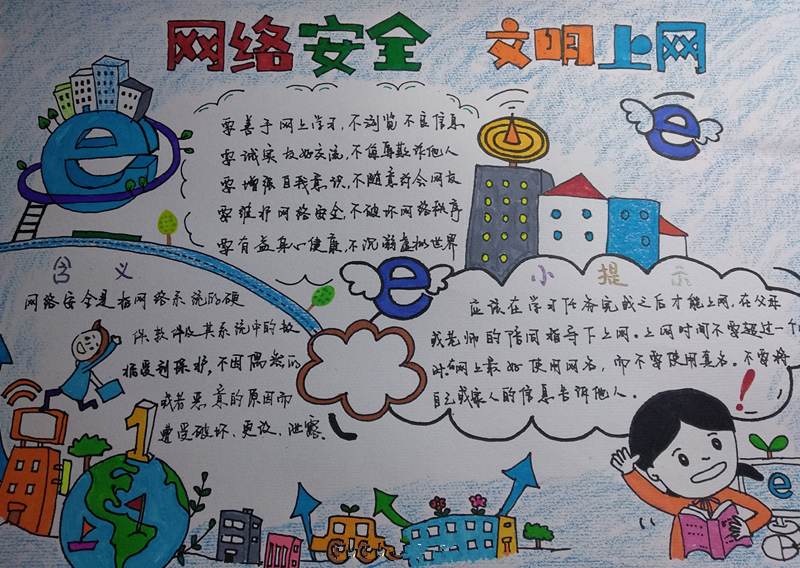 网络安全 文明上网
要善于网上学习,不浏览不良信息
要诚实友好交流,不侮辱欺诈他人
要增强自我意识,不随意约会网友
要维护网络安全,不破坏网络秩序
要有益身心健康,不沉溺虚拟世界
含义
网络安全是指网络系统的硬
件、软件及其系统中的数
据受到保护,不因偶然的
或者恶意的原因而
遭受破坏、更改、泄露。
小提示
应该在学习任务完成之后才能上网,在父母
或老师的陪同指导下上网。上网时间不要超过一个
时。在网上最好使用网名,而不要使用真名。不要将
自己或家人的信息告诉他人。
e
e
e
1
e